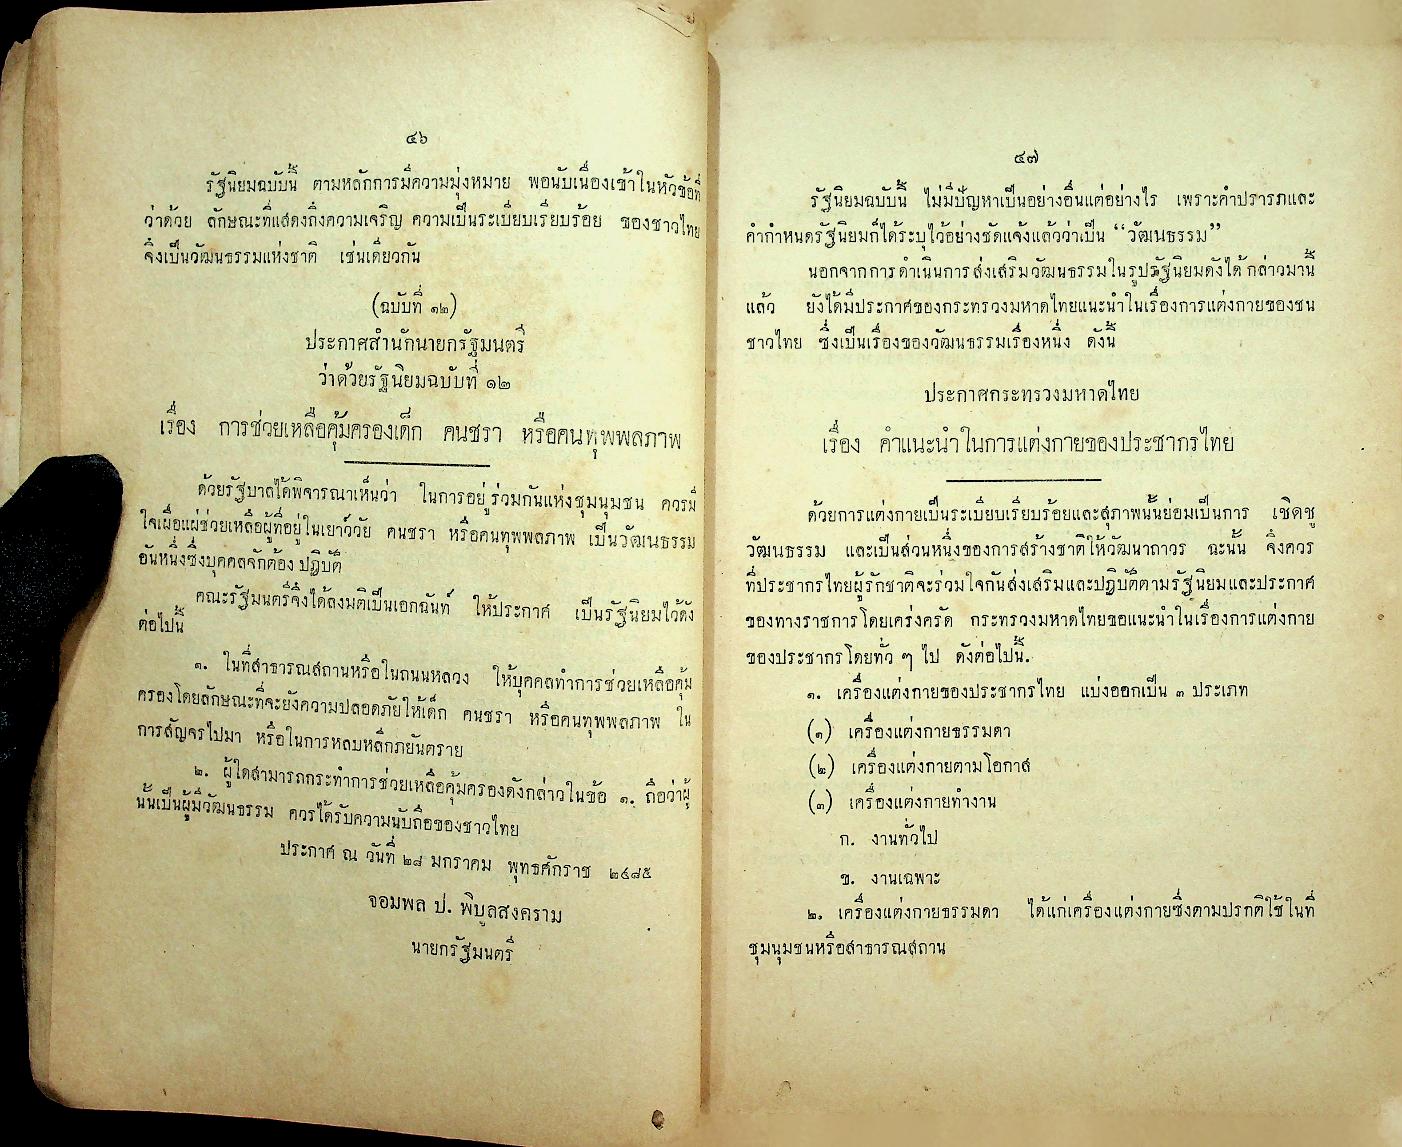 ๔๖
รัฐนิยมฉบับนี้ ตามหลักการมีความมุ่งหมาย พอนับเนื่องเข้าในหัวข้อที่
ว่าด้วย ลักษณะที่แสดงถึงความเจริญ ความเป็นระเบียบเรียบร้อย ของชาวไทย
จึงเป็นวัฒนธรรมแห่งชาติ เช่นเดียวกัน
(ฉบับที่ ๑๒)
ประกาศสำนักนายกรัฐมนตรี
ว่าด้วยรัฐนิยมฉบับที่ ๑๒
เรื่อง การช่วยเหลือคุ้มครองเด็ก คนชรา หรือคนทุพพลภาพ
ด้วยรัฐบาลได้พิจารณาเห็นว่า ในการอยู่ร่วมกันแห่งชุมนุมชน ควรมี
ใจเผื่อแผ่ช่วยเหลือผู้ที่อยู่ในเยาว์วัย คนชรา หรือคนทุพพลภาพ เป็นวัฒนธรรม
อันหนึ่งซึ่งบุคคลจักต้องปฏิบัติ
คณะรัฐมนตรีจึงได้ลงมติเป็นเอกฉันท์ ให้ประกาศ เป็นรัฐนิยมไว้ดั่ง
ต่อไปนี้
๑. ในที่สาธารณสถานหรือในถนนหลวง ให้บุคคลทำการช่วยเหลือคุ้ม
ครองโดยลักษณะที่จะยังความปลอดภัยให้เด็ก คนชรา หรือคนทุพพลภาพ ใน
การสัญจรไปมา หรือในการหลบหลีกภยันตราย
๒. ผู้ใดสามารถกระทำการช่วยเหลือคุ้มครองดังกล่าวในข้อ ๑. ถือว่าผู้
นั้นเป็นผู้มีวัฒนธรรม ควรได้รับความนับถือของชาวไทย
ประกาศ ณ วันที่ ๒๘ มกราคม พุทธศักราช ๒๔๘๕
จอมพล ป. พิบูลสงคราม
นายกรัฐมนตรี
๔๗
รัฐนิยมฉบับนี้ ไม่มีปัญหาเป็นอย่างอื่นแต่อย่างไร เพราะคำปรารภและ
คำกำหนดรัฐนิยมก็ได้ระบุไว้อย่างชัดแจ้งแล้วว่าเป็น “วัฒนธรรม”
นอกจากการดำเนินการส่งเสริมวัฒนธรรมในรูปรัฐนิยมดังได้กล่าวมานี้
แล้ว ยังได้มีประกาศของกระทรวงมหาดไทยแนะนำในเรื่องการแต่งกายของชน
ชาวไทย ซึ่งเป็นเรื่องของวัฒนธรรมเรื่องหนึ่ง ดังนี้
ประกาศกระทรวงมหาดไทย
เรื่อง คำแนะนำในการแต่งกายของประชากรไทย
ด้วยการแต่งกายเป็นระเบียบเรียบร้อยและสุภาพนั้นย่อมเป็นการ เชิดชู
วัฒนธรรม และเป็นส่วนหนึ่งของการสร้างชาติให้วัฒนาถาวร ฉะนั้น จึงควร
ที่ประชากรไทยผู้รักชาติจะร่วมใจกันส่งเสริมและปฏิบัติตามรัฐนิยมและประกาศ
ของทางราชการโดยเคร่งครัด กระทรวงมหาดไทยขอแนะนำในเรื่องการแต่งกาย
ของประชากรโดยทั่ว ๆ ไป ดังต่อไปนี้.
๑. เครื่องแต่งกายของประชากรไทย แบ่งออกเป็น ๓ ประเภท
(๑) เครื่องแต่งกายธรรมดา
(๒) เครื่องแต่งกายตามโอกาส
(๓) เครื่องแต่งกายทำงาน
ก. งานทั่วไป
ข. งานเฉพาะ
๒. เครื่องแต่งกายธรรมดา ได้แก่เครื่องแต่งกายซึ่งตามปรกติใช้ในที่
ชุมนุมชนหรือสาธารณสถาน